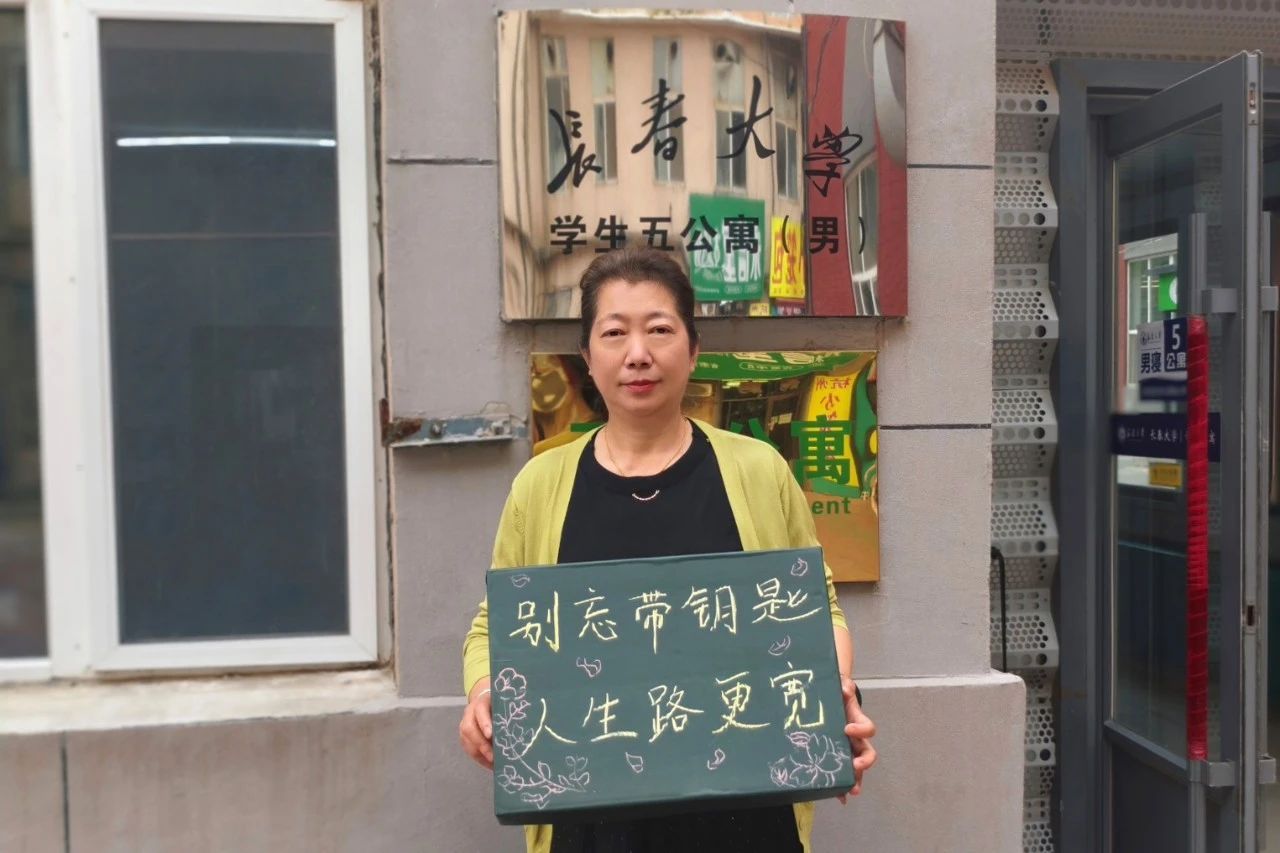 長春大學
学生五公寓（男）
公寓
ent
别忘带钥匙
人生路更宽
5
男寝公寓
长春大学